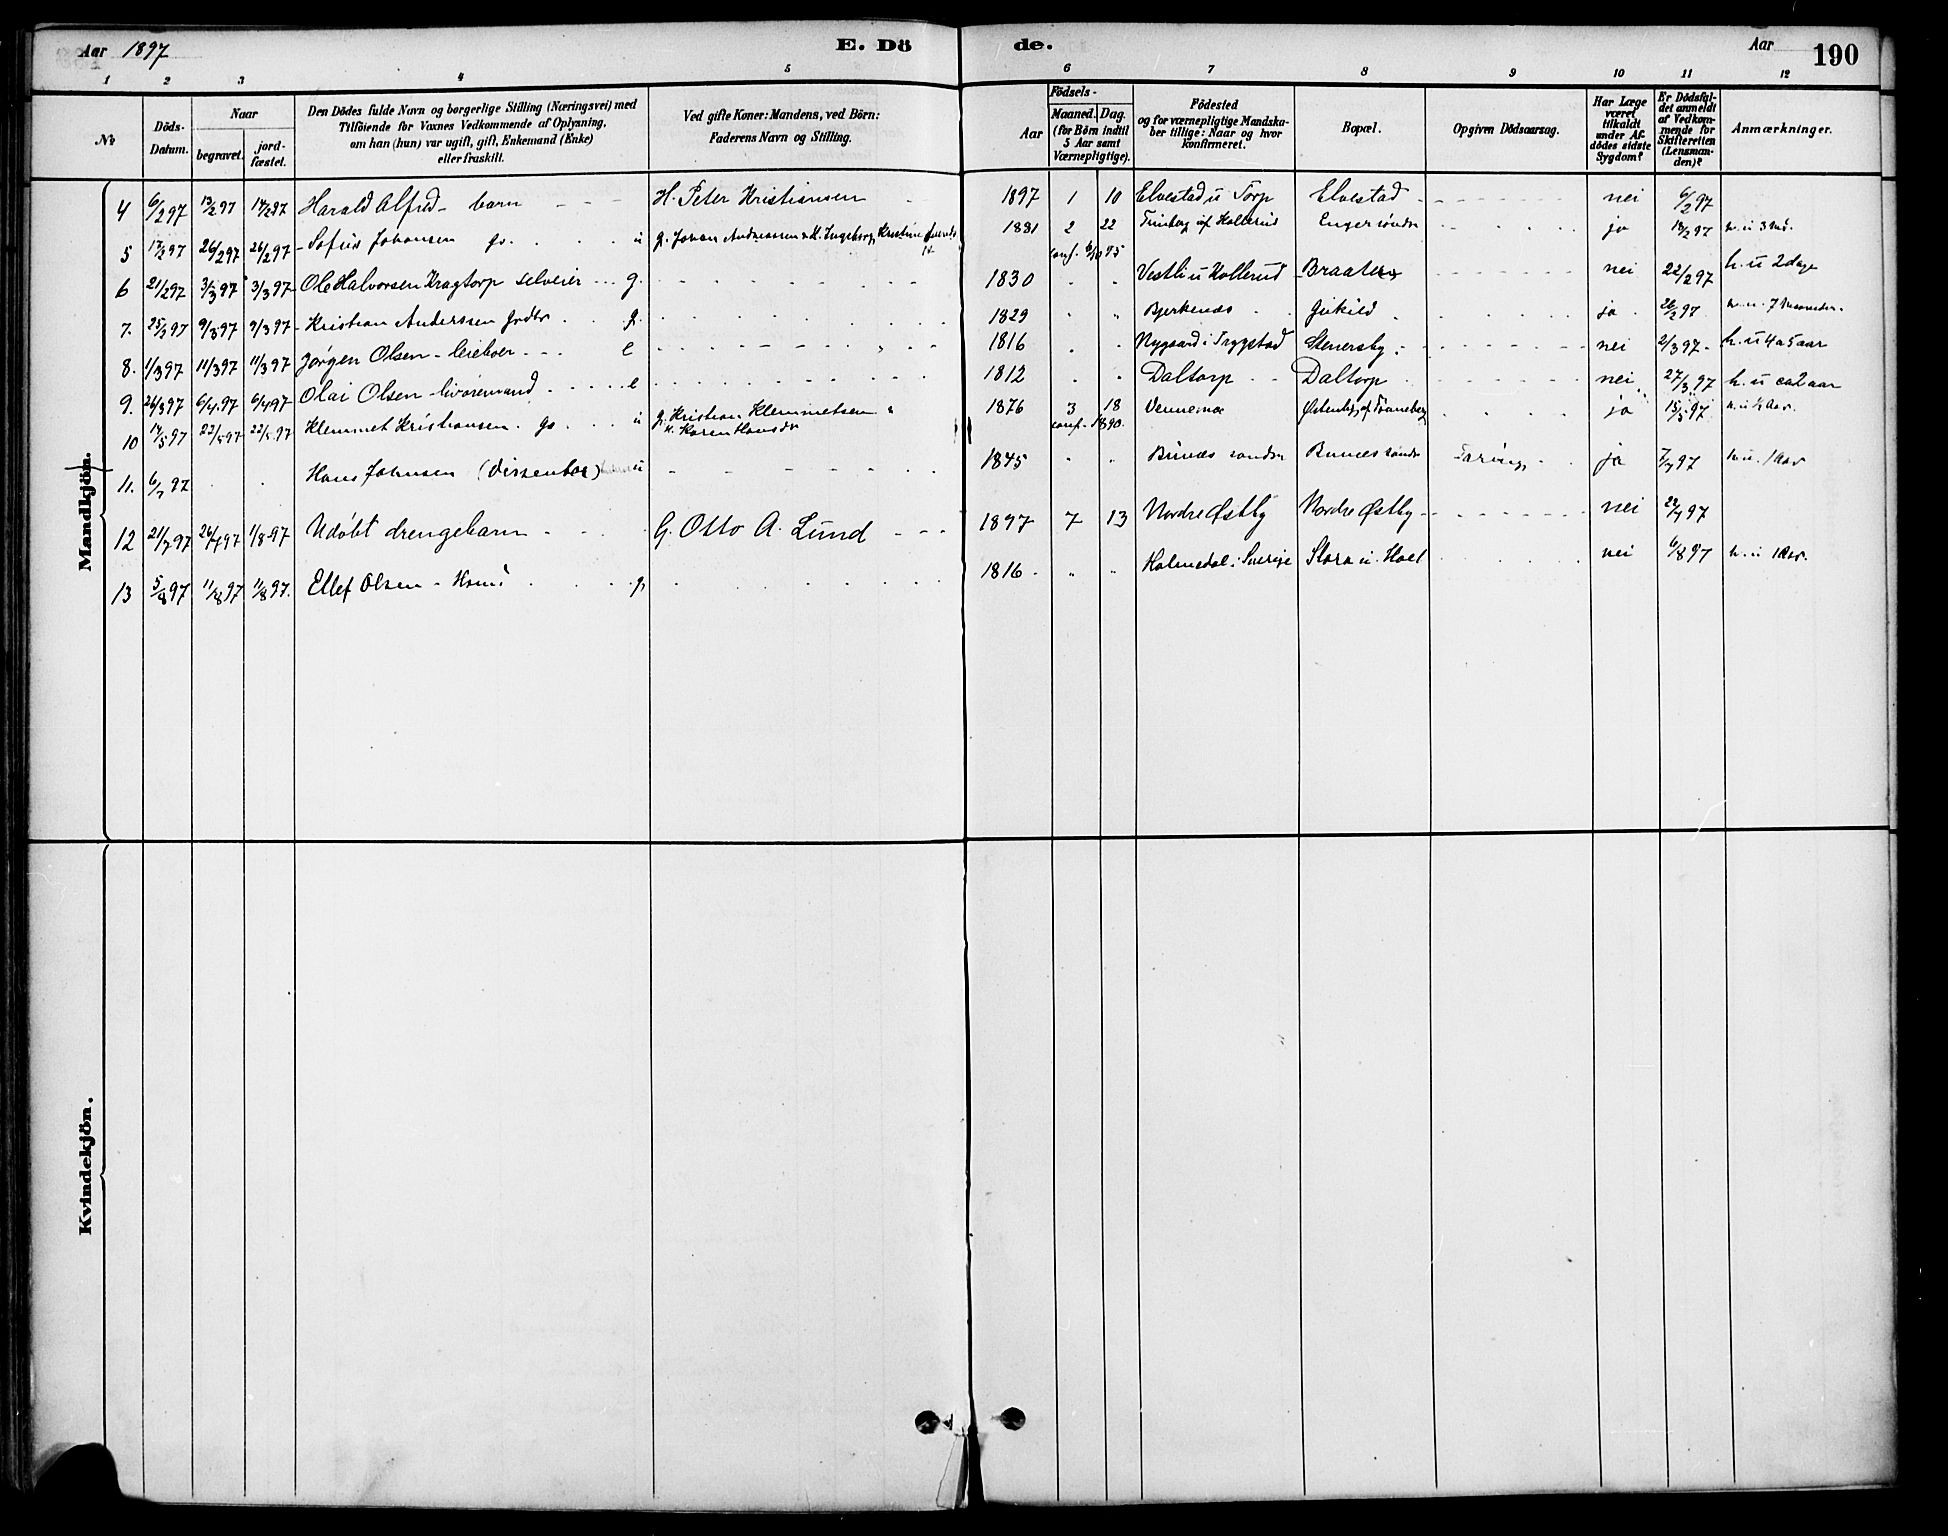 Aar 1897
E. Dö
de.
Aar
190
1 2 3 4 5 6 7 8 9 10 11 12
№
Döds-
Datum.
Naar
begravet.
jord-
fæstet.
Den Dödes fulde Navn og borgerlige Stilling (Næringsvei) med
Tilföiende for Voxnes Vedkommende af Oplysning,
om han (hun) var ugift, gift, Enkemand (Enke)
eller fraskilt.
Ved gifte Koner: Mandens, ved Börn:
Faderens Navn og Stilling.
Födsels-
Aar
Maaned.
Dag.
(for Börn indtil
5 Aar samt
Værnepligtige).
Födested
og for værnepligtige Mandska-
ber tillige: Naar og hvor
konfirmeret.
Bopæl.
Opgiven Dödsaarsag.
Har Læge
været
tilkaldt
under Af-
dödes sidste
Sygdom?
Er Dödsfal-
det anmeldt
af Vedkom-
mende for
Skifteretten
(Lensman-
den)?
Anmærkninger.
Mandkjön.
4 6/2 97 13/2 97 14/2 97 Harald Alfred - barn H. Peter Kristiansen 1897 1 10 Elvestad u Torp Elvestad nei 6/2 97
5 17/2 97 26/2 97 26/2 97 Sofus Johansen gs. u g. Johan Andreassen & K. Ingeborg Kristine 1881 2 22 af Kollerud Enger søndre ja 18/2 97 h. u 3
conf. 6/10 95
6 21/2 97 3/3 97 3/3 97 Ole Halvorsen Kragtorp selveier g. 1830 " " Vestli u Kollerud Braaten nei 22/2 97 h. u 2 dage
7. 25/2 97 9/3 97 9/3 97 Kristian Anderssen g. 1829 " " Bjerkenæs ja 26/2 97 h. u. 7 maaneder.
8. 1/3 97 11/3 97 11/3 97 Jørgen Olsen - leieboer e 1816 " " Nygaard i Trygstad Stenersby nei 2/3 97 h. u 4 a 5 aar
9. 26/3 97 6/4 97 6/4 97 Olai Olsen - livøremand e 1812 " " Daltorp Daltorp nei 27/3 97 h. u ca 2 aar
10 14/5 97 22/5 97 22/5 97 Klemmet Kristiansen gs u g. Kristian Klemmetsen & 1876 3 18 Vennemoe ja 15/5 97
K. Karen Hansdr conf. 1890.
11. 6/7 97 Hans Johnsen u 1845 " " Bunæs søndre Bunæs søndre Tæring ja 7/7 97 h. u. 1 Aar
12 21/7 97 26/7 97 1/8 97 Udøbt drengebarn G. Otto A. Lund 1897 7 13 Nordre Østby Nordre Østby nei 22/7 97
13 5/8 97 11/8 97 11/8 97. Ellef Olsen g. 1816 " " Holmedal i Sverige Stora u. Hoel nei 6/8 97 h. u 1 Aar.
Kvindekjön.